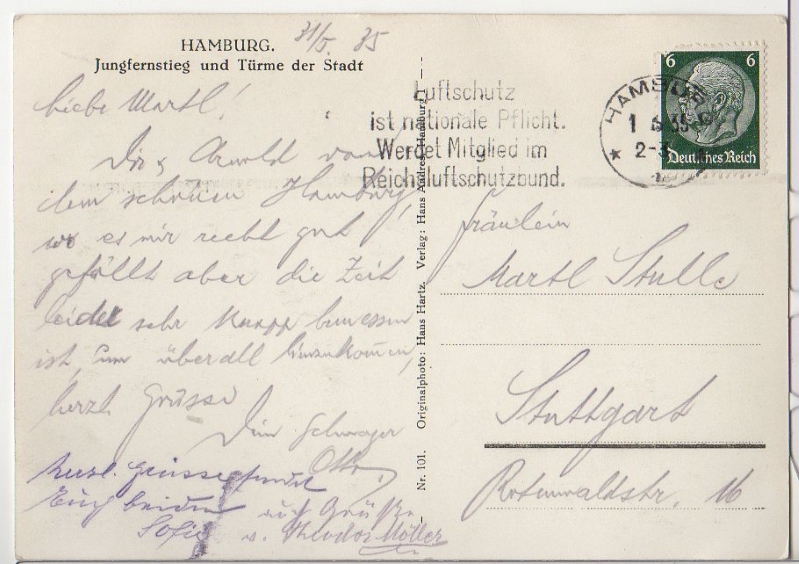 HAMBURG. 31/5. 35
Jungfernstieg und Türme der Stadt
Liebe Martl!
Dir & Arnold von
dem schönen Hamburg,
wo es mir recht gut
gefällt aber die Zeit
leider sehr knapp bemessen
ist, um überall hinzukommen,
herzl. Grüsse
Dein Schwager
Otto
herzl. Grüsse sendet
Euch beiden
Sofie
auch Grüße
v. Theodor Möller
Nr. 101. Originalphoto: Hans Hartz. Verlag: Hans Andres, Hamburg 1
Luftschutz
ist nationale Pflicht.
Werdet Mitglied im
Reichsluftschutzbund.
HAMBURG
1 6 35
2-3
6 6
Deutsches Reich
Fräulein
Martl Stulle
Stuttgart
Rotenwaldstr. 16